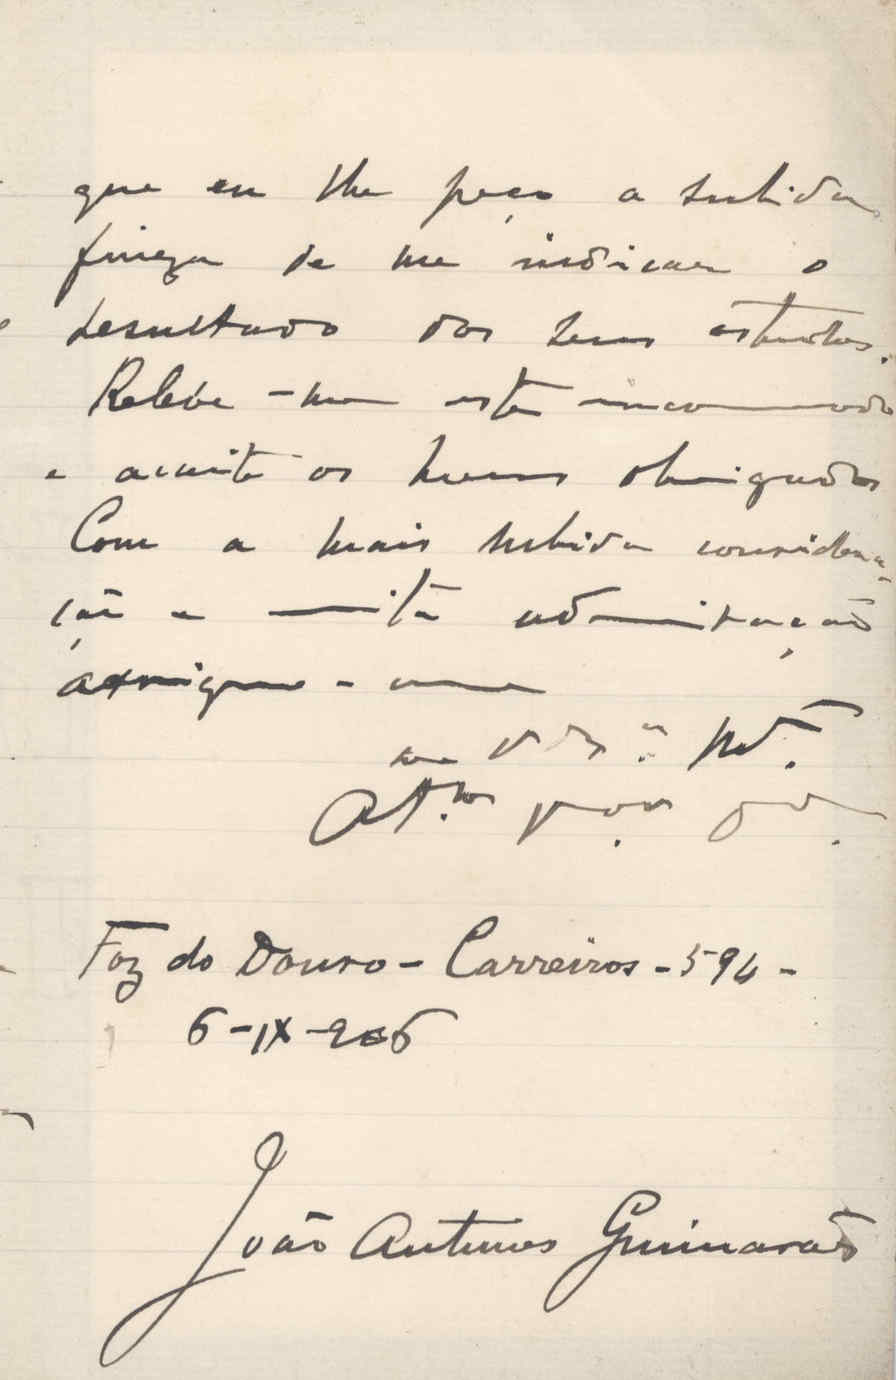 que eu lhe peço a subida
fineza de me indicar o
resultado dos seus estudos.
Releve-me este incommodo
e aceite os meus obrigados
Com a mais subida considera-
ção e muita admiração
assigno-me
de V Ex.ª
At.to
Foz do Douro - Carreiros - 594 -
6-IX-906
João Antunes Guimarães